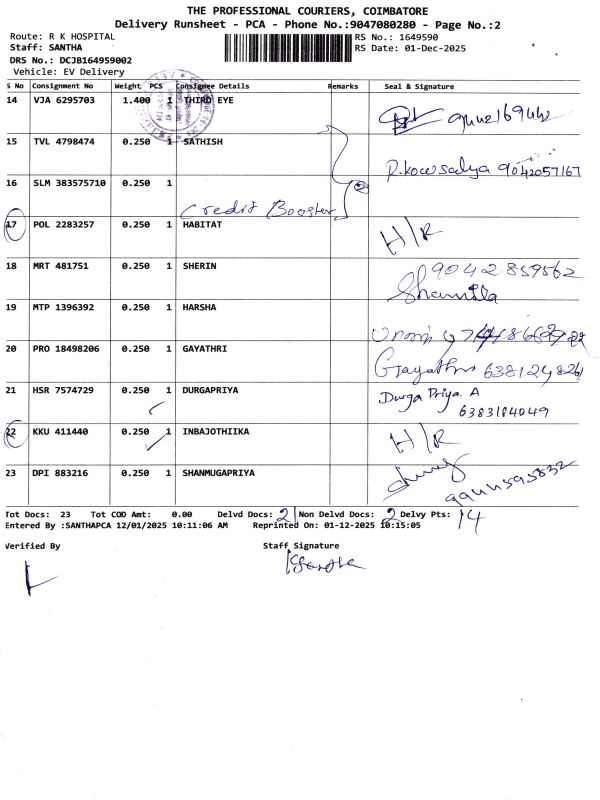 THE PROFESSIONAL COURIERS, COIMBATORE
Delivery Runsheet - PCA - Phone No.:9047080280 - Page No.:2
Route: R K HOSPITAL RS No.: 1649590
Staff: SANTHA RS Date: 01-Dec-2025
DRS No.: DCJB164959002
Vehicle: EV Delivery
S No Consignment No Weight PCS Consignee Details Remarks Seal & Signature
14 VJA 6295703 1.400 1 THIRD EYE
15 TVL 4798474 0.250 1 SATHISH R.kowsalya 9042057167
16 SLM 383575710 0.250 1 Credit Booster
17 POL 2283257 0.250 1 HABITAT H/R
18 MRT 481751 0.250 1 SHERIN 9042859562 Shamila
19 MTP 1396392 0.250 1 HARSHA
20 PRO 18498206 0.250 1 GAYATHRI Gayathri
21 HSR 7574729 0.250 1 DURGAPRIYA Durga Priya. A 6383184049
22 KKU 411440 0.250 1 INBAJOTHIIKA H/R
23 DPI 883216 0.250 1 SHANMUGAPRIYA
Tot Docs: 23 Tot COD Amt: 0.00 Delvd Docs: 21 Non Delvd Docs: 2 Delvy Pts: 14
Entered By :SANTHAPCA 12/01/2025 10:11:06 AM Reprinted On: 01-12-2025 10:15:05
Verified By Staff Signature